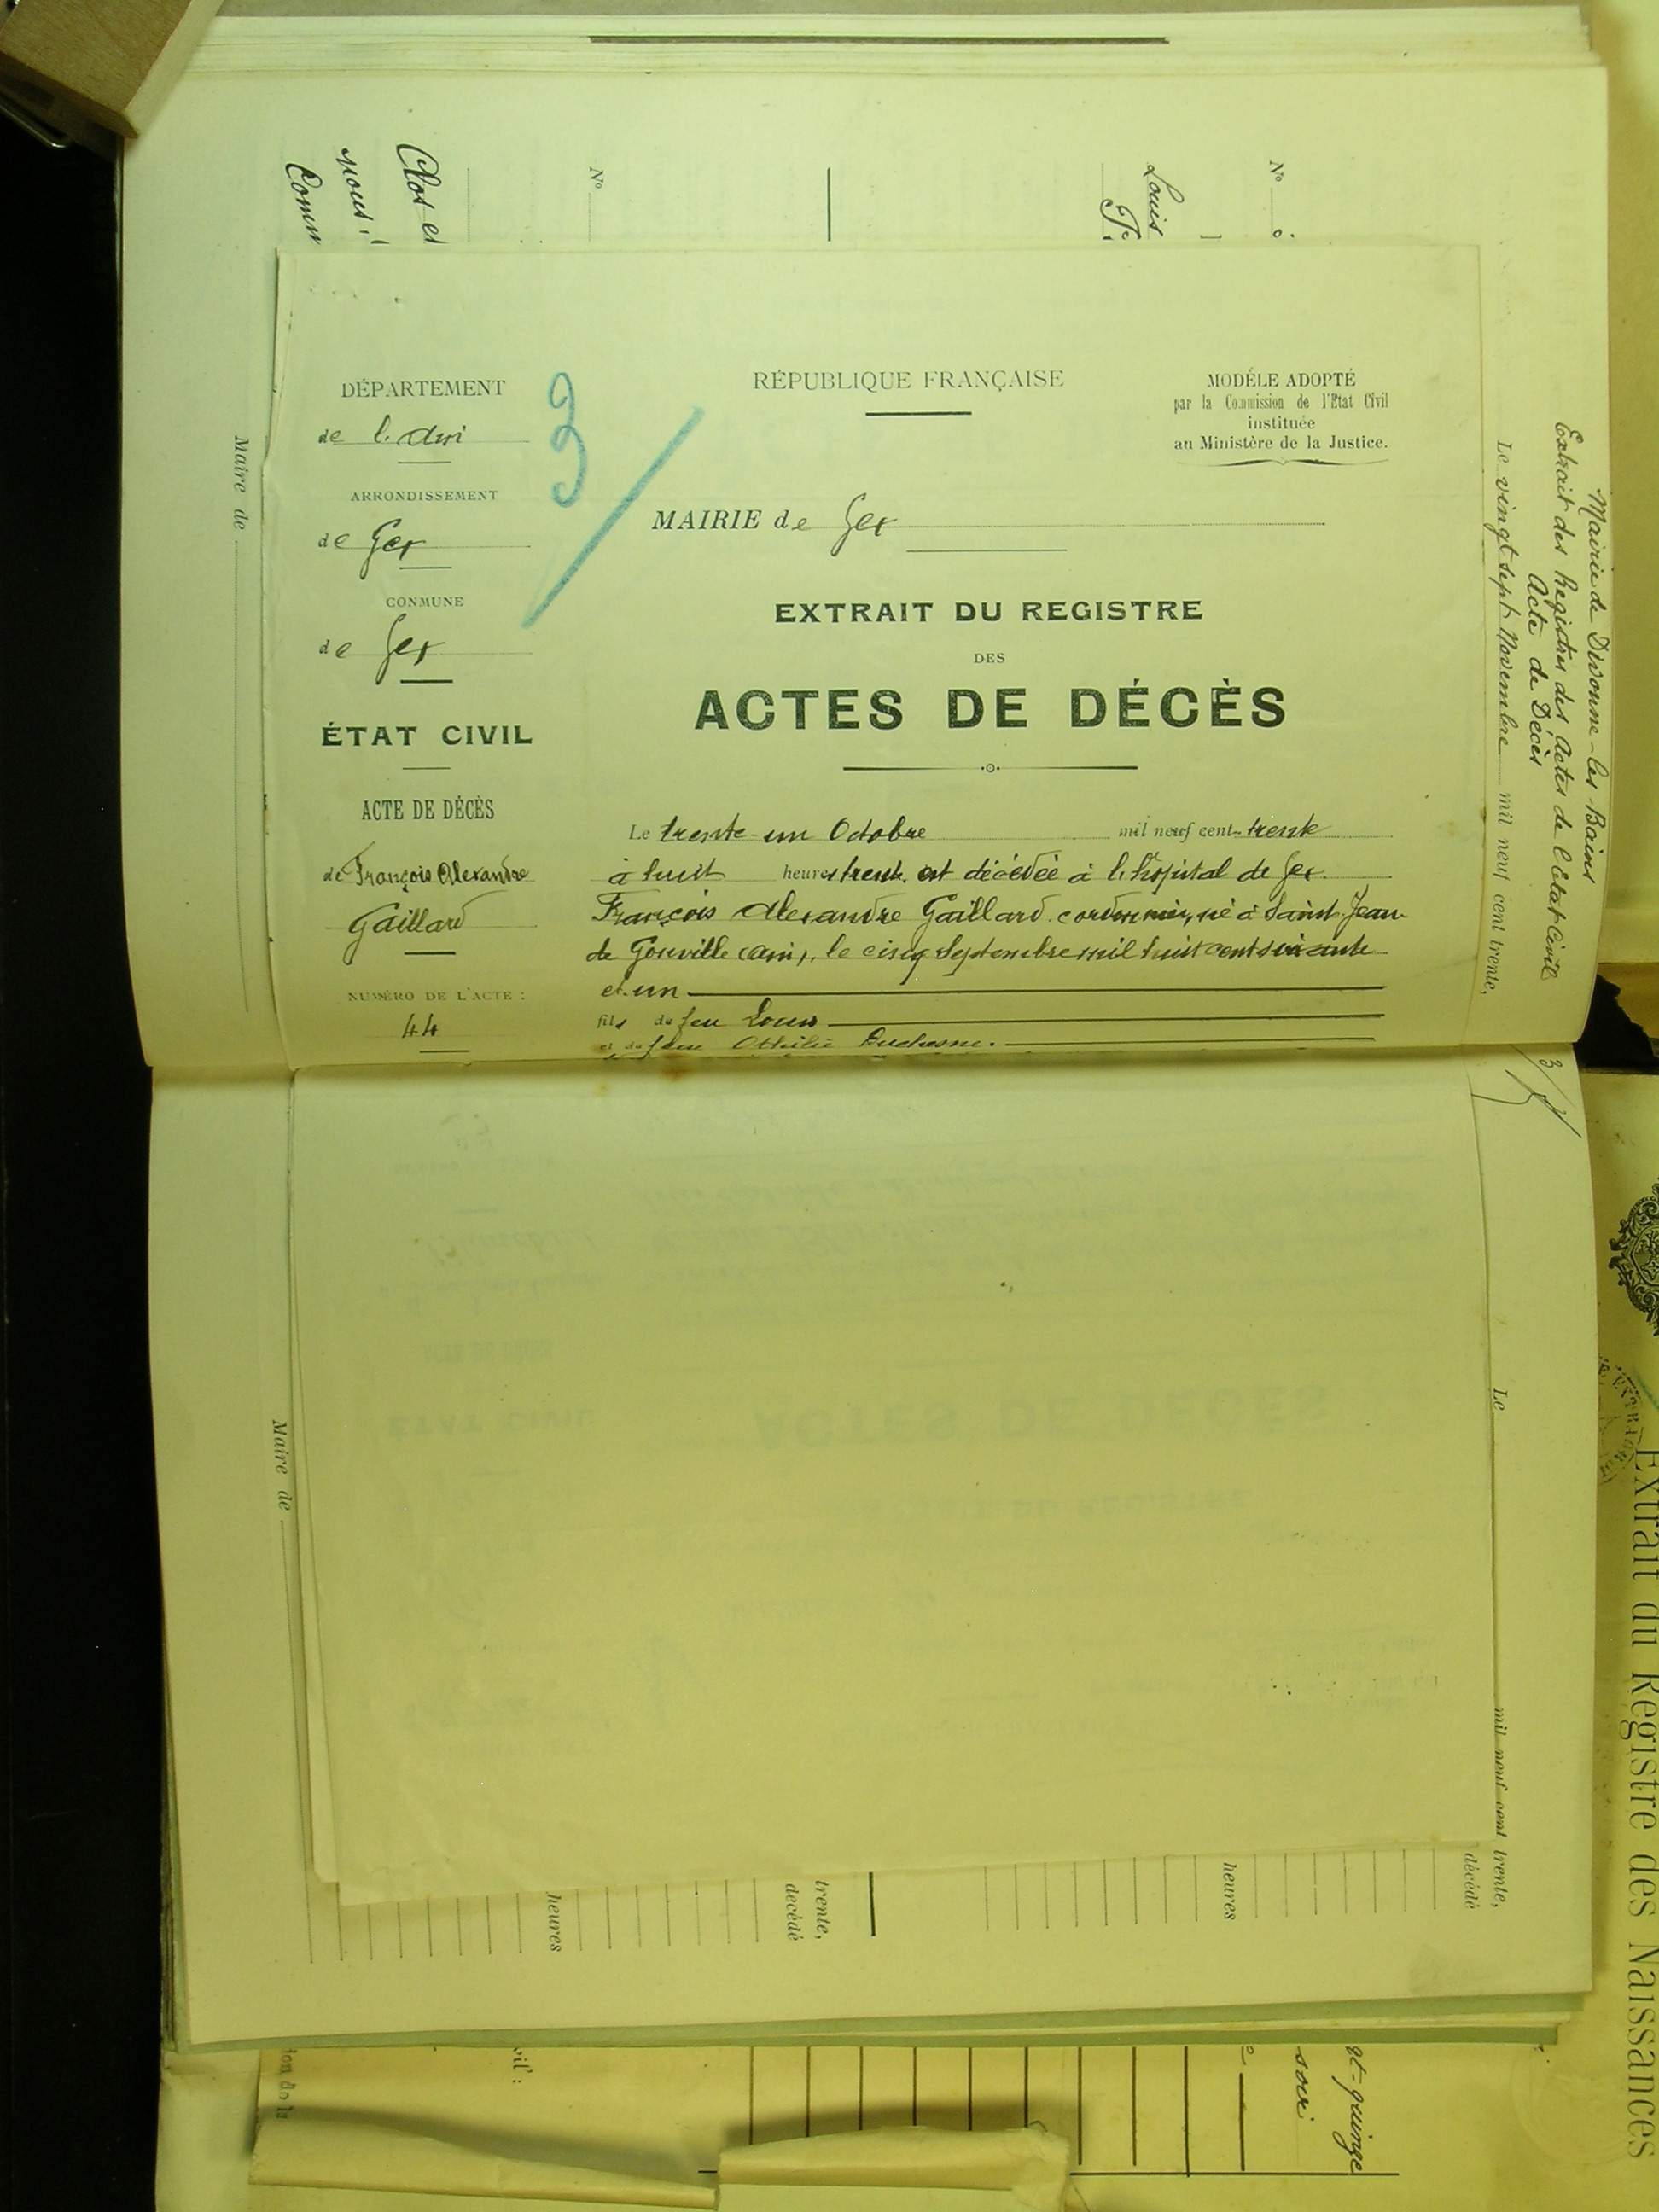 DÉPARTEMENT
de l'Ain
ARRONDISSEMENT
de Gex
CONMUNE
de Gex
ÉTAT CIVIL
ACTE DE DÉCÈS
de François Alexandre
Gaillard
NUMÉRO DE L'ACTE :
44
3
RÉPUBLIQUE FRANÇAISE
MODÉLE ADOPTÉ
par la Commission de l'Etat Civil
instituée
au Ministère de la Justice.
MAIRIE de Gex
EXTRAIT DU REGISTRE
DES
ACTES DE DÉCÈS
Le trente un Octobre mil neuf cent trente
à huit heures trente est décédée à l'hôpital de Gex
François Alexandre Gaillard cordonnier, né à Saint Jean
de Gonville (Ain), le cinq Septembre mil huit cent soixante
et un
fils de feu Louis
et de feue Othilie Duchesne.
Mairie de Divonne-les-Bains
Extrait des Registres des Actes de l'Etat Civil
Acte de Décès
Le vingt sept Novembre mil neuf cent trente,
Nº
Louis
Nº
Clos et
nous,
Comm
Maire de
3
Le mil neuf cent trente,
décédé
heures
trente,
decédé
heures
Maire de
Extrait du Registre des Naissances
gt-quinze
soix